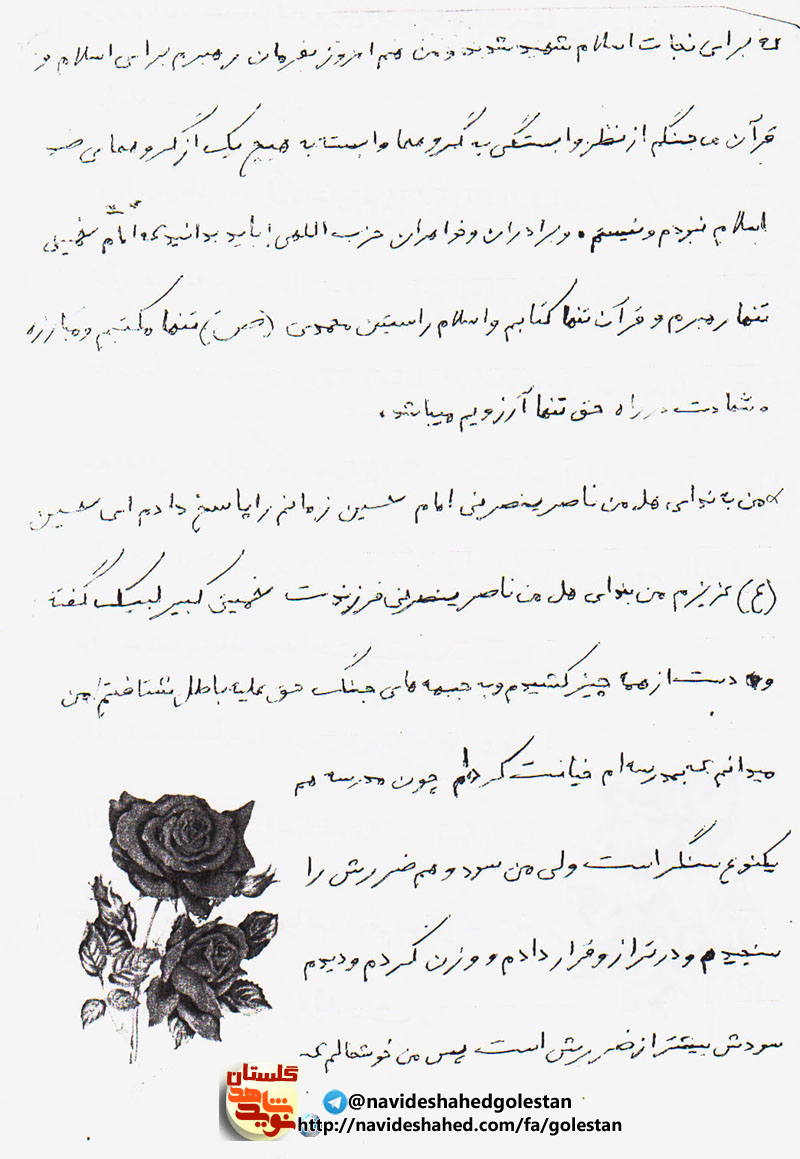 که برای نجات اسلام شهید شدید و من هم امروز بفرمان رهبرم برای اسلام و
قرآن می جنگم از نظر وابستگی به گروهها وابسته به هیچ یک از گروههای ضد
اسلام نبودم و نیستم. و برادران و خواهران حزب اللهی باید بدانید که امام خمینی
تنها رهبرم و قرآن تنها کتابم و اسلام راستین محمدی (ص) تنها مکتبم و مبارزه
و شهادت در راه حق تنها آرزویم میباشد.
من به ندای هل من ناصر ینصرنی امام حسین زمانم را پاسخ دادم ای حسین
(ع) عزیزم من بندای هل من ناصر ینصرنی فرزندت خمینی کبیر لبیک گفته
و دست از همه چیز کشیدم و به جبهه های جنگ حق علیه باطل شتافتم من
میدانم که بمدرسه ام خیانت کرده ام چون مدرسه هم
یکنوع سنگر است ولی من سود و هم ضررش را
سنجیدم و در ترازو قرار دادم و وزن کردم و دیدم
سودش بیشتر از ضررش است پس من خوشحالم که
گلستان
نوید شاهد
@navideshahedgolestan
http://navideshahed.com/fa/golestan